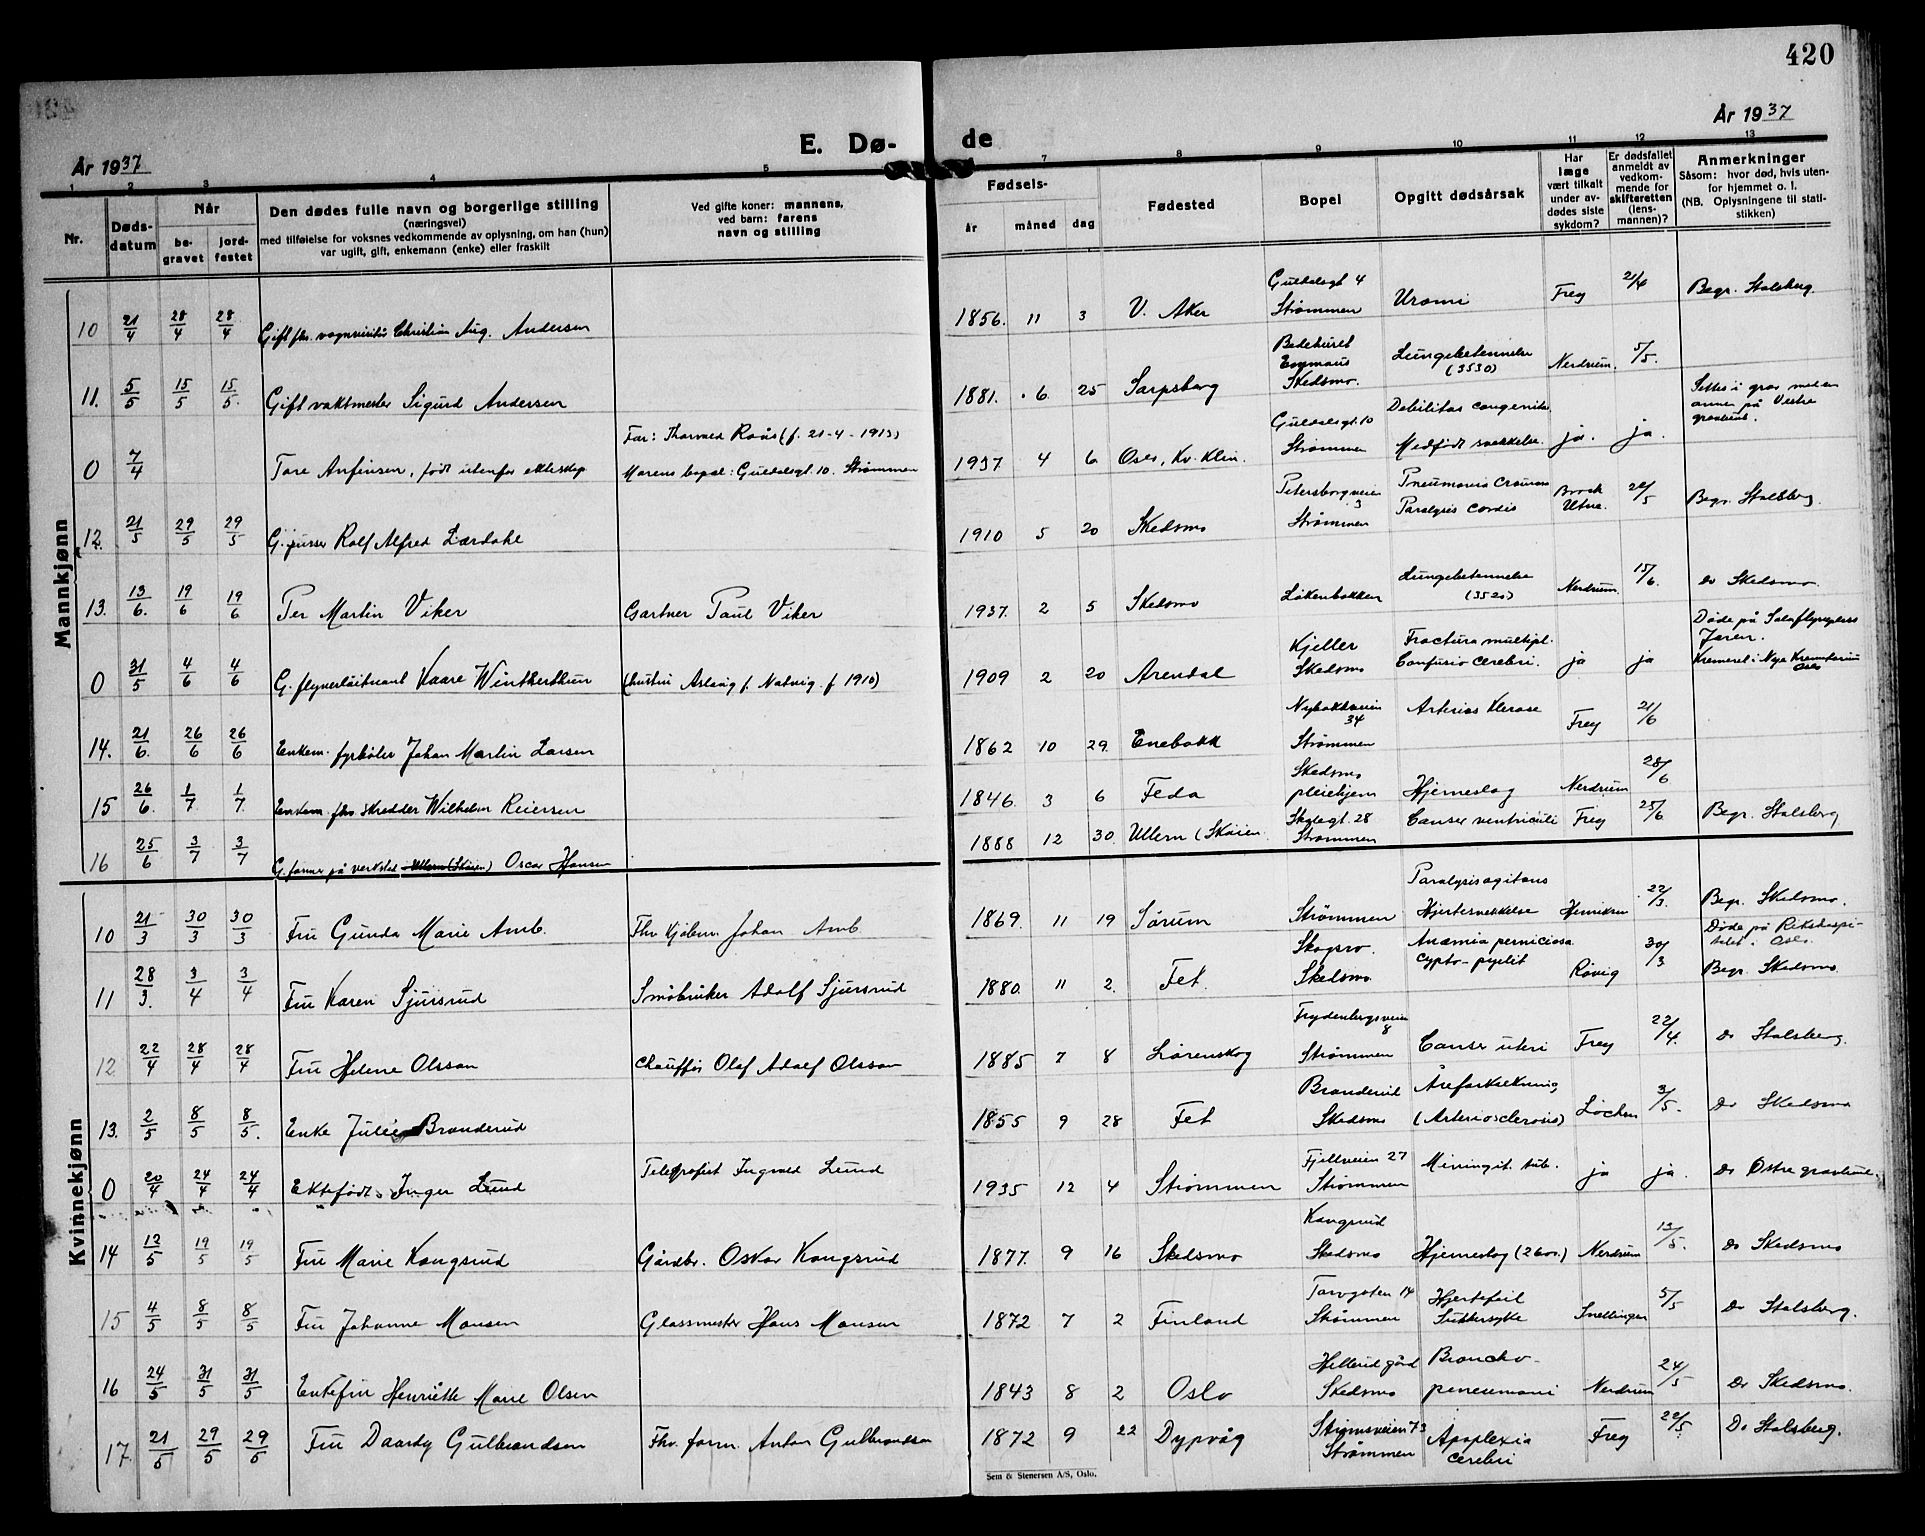 420
År 1937
E. Dø-
de
År 1937
1 2 3 4 5
7 8 9 10 11 12 13
Nr.
Døds-
datum
Når
be-
gravet
jord-
festet
Den dødes fulle navn og borgerlige stilling
(næringsvei)
med tilføielse for voksnes vedkommende av oplysning, om han (hun)
var ugift, gift, enkemann (enke) eller fraskilt
Ved gifte koner: mannens,
ved barn: farens
navn og stilling
Fødsels-
år måned dag
Fødested
Bopel
Opgitt dødsårsak
Har
læge
vært tilkalt
under av-
dødes siste
sykdom?
Er dødsfallet
anmeldt av
vedkom-
mende for
skifteretten
(lens-
mannen)?
Anmerkninger
Såsom: hvor død, hvis uten-
for hjemmet o. l.
(NB. Oplysningene til stati-
stikken)
Mannkjønn
10 21/4 28/4 28/4 Gift fhv. vognvisitør Christian Aug. Andersen
1856. 11 3 V. Aker Guldalsgt 4 Strømmen Uremi Frey 21/4 Begr. Stalsberg.
11. 5/5 15/5 15/5. Gift vaktmester Sigurd Andersen
1881. 6. 25 Sarpsborg Bedehuset Emmaus Skedsmo. Lungebetennelse (3530) Nerdrum. 5/5. Settes i grav med en annen på Vestre gravlund.
0 7/4 Tore Anfinsen, født utenfor ekteskap
Far: Thorvald Roås (f. 21-4-1913)
Morens bopel: Guldalsgt. 10. Strømmen
1937. 4 6 Oslo, Kv. Klin. Guldalsgt. 10 Strømmen Debilitas congenita. Medfødt svekkelse. ja. ja.
12. 21/5 29/5 29/5 G. pusser Rolf Alfred Lærdahl
1910 5 20 Skedsmo Petersborgveien 3 Strømmen Pneumonia Crouposa Paralysis cordis Brock Utne. 22/5 Begr. Stalsberg.
13. 13/6. 19/6 19/6 Per Martin Viker Gartner Paul Viker
1937. 2 5 Skedsmo Løkenbakken Lungebetennelse (3520) Nerdrum. 15/6. Do Skedsmo.
0 31/5 4/6 4/6 G. flyverløitnant Kaare Wintherthun (hustru Aslaug f. Natvig. f 1910)
1909 2 20 Arendal Kjeller Skedsmo Fractura multipl. Confusio cerebri. ja ja Døde på Solaflyveplass Jæren. Kremert i Nye Krematorium Oslo
14. 21/6. 26/6 26/6 Enkem. fyrbøter Johan Martin Larsen
1862 10 29. Enebakk Nybakkveien 34 Strømmen Arterios klerose Frey 21/6
15 26/6. 1/7 1/7 Enkem. fhv. skredder Wilhelm Reiersen
1846. 3 6 Feda Skedsmo pleiehjem Hjerneslag Nerdrum 28/6
16 25/6 3/7 3/7 G. former på verksted Ullern (Skøien) Oscar Hansen
1888 12 30. Ullern (Skøien Skolegt. 28 Strømmen Canser ventriculi Frey 25/6 Begr. Stalsberg
Kvinnekjønn
10 21/3 30/3 30/3 Fru Gunda Marie Amb. Fhv. kjøbm. Johan Amb
1869. 11 19 Sørum Strømmen Paralysis agitans Hjertesvekkelse Henriksen 22/3. Begr. Skedsmo.
11 28/3. 3/4 3/4 Fru Karen Sjursrud Småbruker Adolf Sjursrud
1880. 11 2. Fet. Skogsro. Skedsmo. Anæmia perniciosa cypto-pyelit Røvig 30/3 Døde på Rikshospitalet. Oslo. Begr. Skedsmo
12 22/4 28/4 28/4 Fru Helene Olsson Chauffør Olaf Adolf Olsson
1885 7 8 Lørenskog Frydenbergsveien 8 Strømmen Canser uteri Frey 22/4. Do Stalsberg.
13. 2/5 8/5 8/5. Enke Julie Branderud
1855 9 28 Fet Branderud Skedsmo Åreforkalkning (Arteriosclerosis) Lochen 3/5. Do Skedsmo
0 20/4 24/4 24/4 Ektefødt. Inger Lund Telegrafist Ingvald Lund
1935 12 4 Strømmen Fjellveien 27 Strømmen Miningit. tub. ja ja. Do Østre gravlund.
14 12/5 19/5 19/5 Fru Marie Kongsrud Gårdbr. Oskar Kongsrud
1877. 9 16 Skedsmo Kongsrud Skedsmo Hjerneslag (2600.) Nerdrum 13/5. Do Skedsmo
15 4/5 8/5 8/5 Fru Johanne Monsen Glassmester Hans Monsen
1872 7 2 Finland Torvgaten 14 Strømmen Hjertefeil Sukkersyke Snellingen 5/5 Do Stalsberg.
16 24/5 31/5 31/5 Enkefru Henriette Marie Olsen
1843 8 2 Oslo Hellerud gård Skedsmo Broncho-pneneumoni Nerdrum 24/5 Do Skedsmo.
17. 21/5 29/5 29/5 Fru Daardy Gulbrandsen Fhv. form. Anton Gulbrandsen
1872 9 22 Dypvåg Stigmsveien 73 Strømmen Apoplexia cerebri Frey 22/5. Do Stalsberg.
Sem & Stenersen A/S, Oslo.